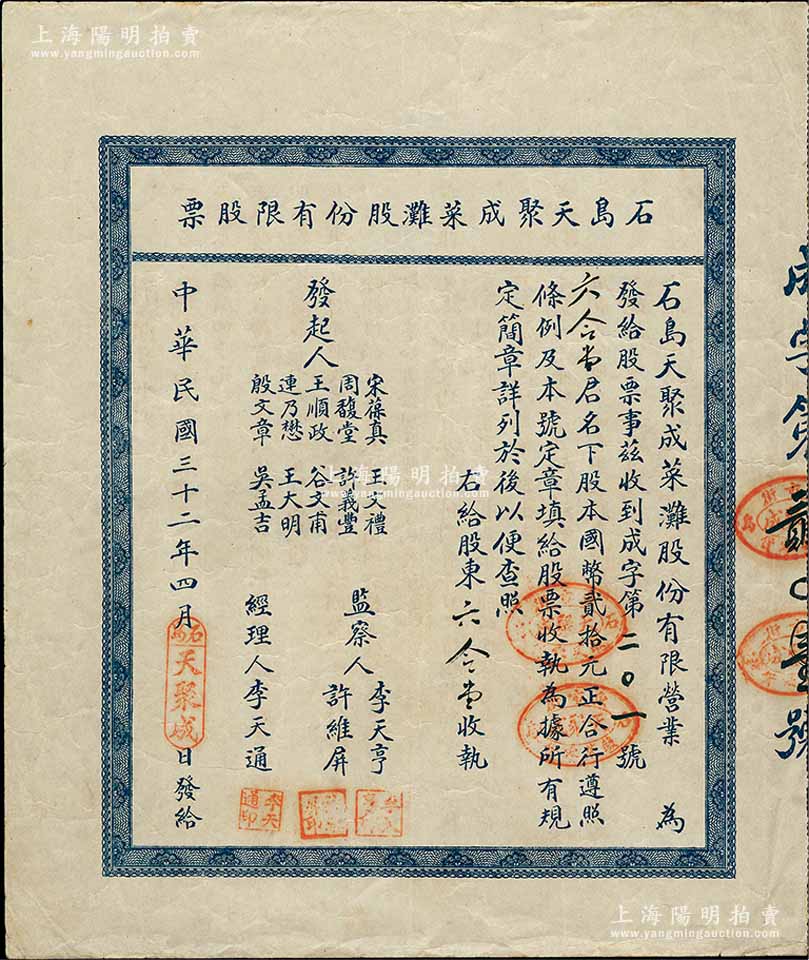 上海陽明拍賣
www.yangmingauction.com
石島天聚成菜灘股份有限股票
石島天聚成菜灘股份有限營業 為
發給股票事茲收到成字第二〇一號
六合堂君名下股本國幣貳拾元正合行遵照
條例及本號定章填給股票收執為據所有規
定簡章詳列於後以便查照
右給股東 六合堂 收執
發起人
宋葆真 王文禮
周馥堂 許義豐
王順政 谷文甫
連乃懋 王大明
殷文章 吳孟吉
監察人 李天亨
許維屏
經理人李天通
李天通印
中華民國三十二年四月 日發給
石島
天聚成
成字第貳〇壹號
上海陽明拍賣
www.yangmingauction.com
上海陽明拍賣
www.yangmingauction.com